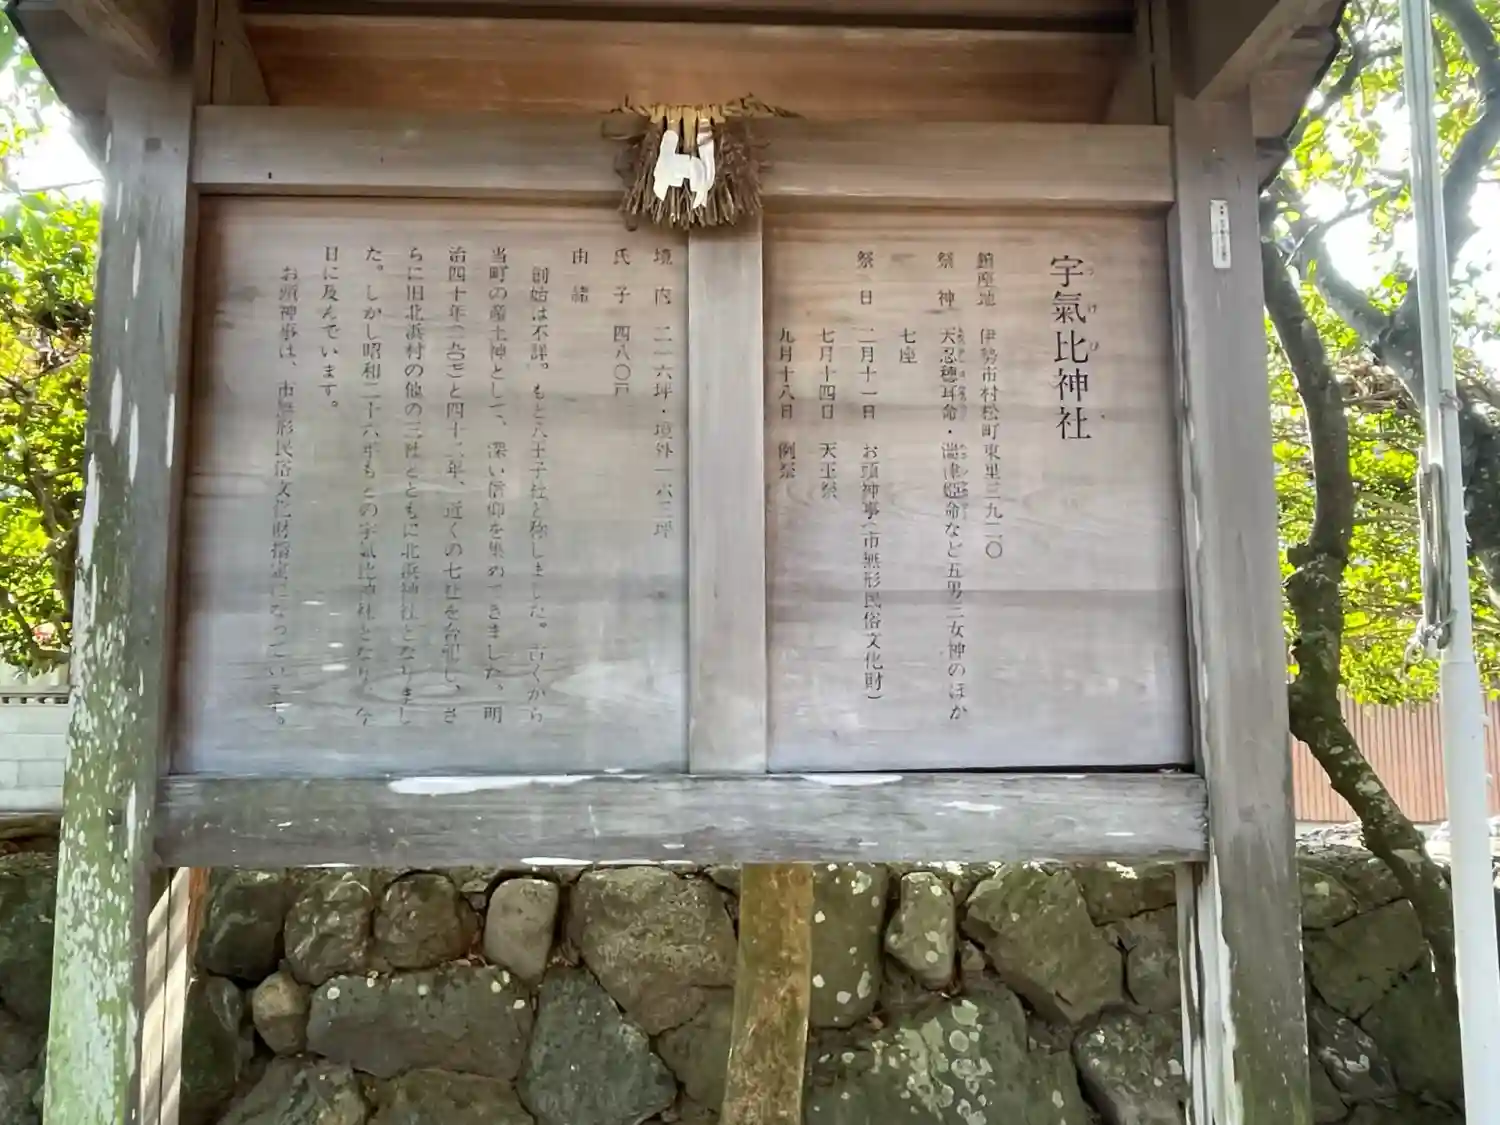 宇氣比神社
うけひ
鎮座地 伊勢市村松町東里三九二〇
祭 神 天忍穂耳命・湍津姫命など五男三女神のほか
七座
祭 日 二月十一日 お頭神事(市無形民俗文化財)
七月十四日 天王祭
九月十八日 例祭
境 内 二一六坪・境外一六三坪
氏 子 四八〇戸
由 緒
創始は不詳。もと八王子社と称しました。古くから
当町の産土神として、深い信仰を集めてきました。明
治四十年(一九〇七)と四十二年、近くの七社を合祀し、さ
らに旧北浜村の他の三社とともに北浜神社となりまし
た。しかし昭和二十六年もとの宇氣比神社となり、今
日に及んでいます。
お頭神事は、市無形民俗文化財指定になっています。